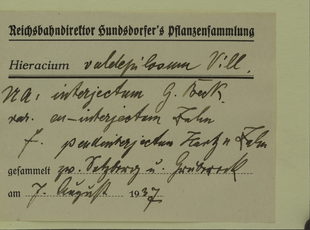 Reichsbahndirektor Hundsdorfer's Pflanzensammlung
Hieracium valdepilosum Vill.
interjectum G. Beck.
var. eu-interjectum Zahn
f. Zahn
gesammelt zw. Salzberg u.
am 7. August 1937